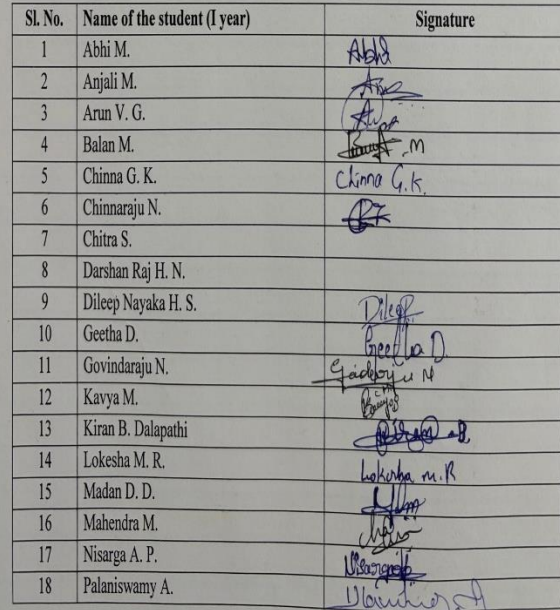 Sl. No. Name of the student (I year) Signature
1 Abhi M. Abhi
2 Anjali M.
3 Arun V. G.
4 Balan M. M
5 Chinna G. K. Chinna G.K.
6 Chinnaraju N.
7 Chitra S.
8 Darshan Raj H. N.
9 Dileep Nayaka H. S. Dileep
10 Geetha D. Geetha D.
11 Govindaraju N.
12 Kavya M.
13 Kiran B. Dalapathi
14 Lokesha M. R. Lokesha m.R
15 Madan D. D.
16 Mahendra M.
17 Nisarga A. P.
18 Palaniswamy A.